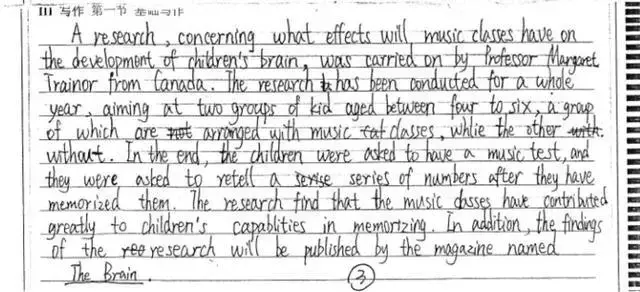 III 写作 第一节 基础写作
A research, concerning what effects will music classes have on
the development of children's brain, was carried on by Professor Margaret
Trainor from Canada. The research has been conducted for a whole
year, aiming at two groups of kid aged between four to six, a group
of which are not arranged with music classes, whlie the other with
without. In the end, the children were asked to have a music test, and
they were asked to retell a serise series of numbers after they have
memorized them. The research find that the music classes have contributed
greatly to children's capablities in memortzing. In addition, the findings
of the research will be published by the magazine named
The Brain.
3